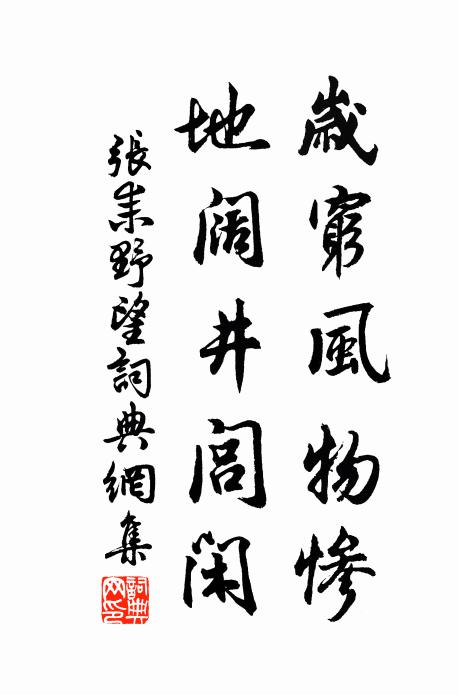 歲窮風物慘
地闊井閭閑
張耒野望詞典網集
詞典
网印